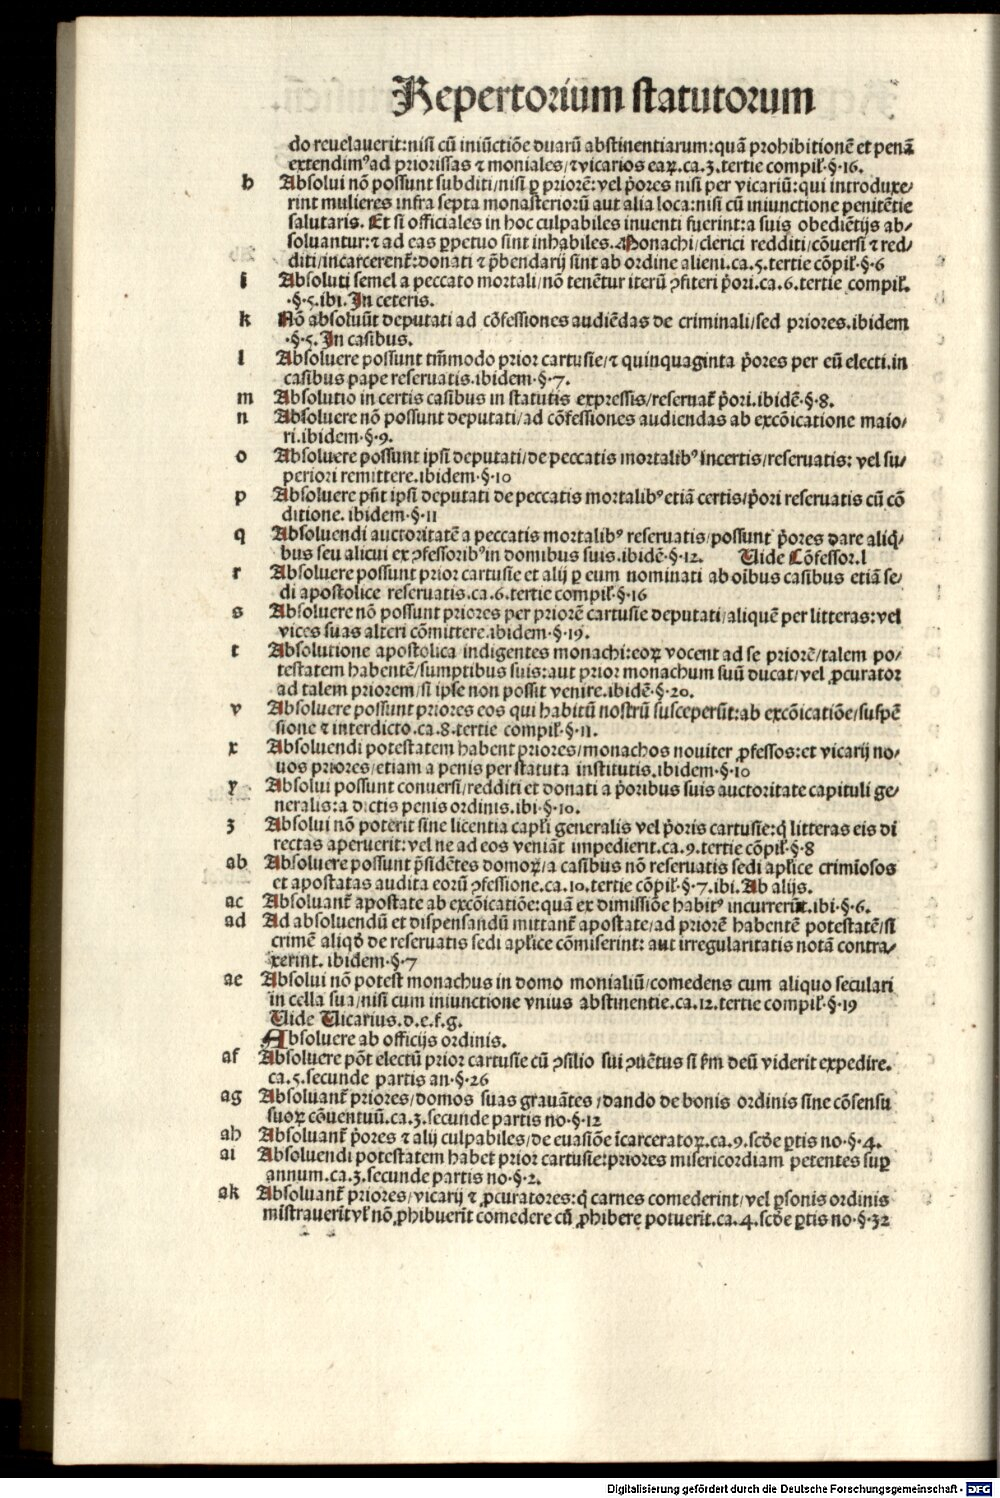 Repertorium statutorum
do reuelauerit:nisi cū iniūctiōe duarū abstinentiarum:quā prohibitionē et penā
extendimꝰ ad priorissas ⁊ moniales/⁊ vicarios eaꝝ.ca.3.tertie compil̓.§.16.
h Absolui nō possunt subditi/nisi ꝑ priorē:vel p̄ores nisi per vicariū:qui introduxe/
rint mulieres infra septa monasteriorū aut alia loca:nisi cū iniunctione penitētie
salutaris. Et si officiales in hoc culpabiles inuenti fuerint:a suis obediētijs ab/
soluantur:⁊ ad eas ꝑpetuo sint inhabiles.Monachi/clerici redditi/cōuersi ⁊ red/
diti/incarcerent᷑:donati ⁊ p̄bendarij sint ab ordine alieni.ca.5.tertie cōpil̓.§.6
i Absoluti semel a peccato mortali/nō tenētur iterū ↄfiteri p̄ori.ca.6.tertie compil̓.
.§.5.ibi.In ceteris.
k Nō absoluūt deputati ad cōfessiones audiēdas de criminali/sed priores.ibidem
.§.5.In casibus.
l Absoluere possunt tm̄modo prior cartusie/⁊ quinquaginta p̄ores per eū electi.in
casibus pape reseruatis.ibidem.§.7.
m Absolutio in certis casibus in statutis expressis/reseruat᷑ p̄ori.ibidē.§.8.
n Absoluere nō possunt deputati/ad cōfessiones audiendas ab excōicatione maio/
ri.ibidem.§.9.
o Absoluere possunt ipsi deputati/de peccatis mortalibꝰ incertis/reseruatis: vel su/
periori remittere.ibidem.§.10
p Absoluere pn̄t ipsi deputati de peccatis mortalibꝰ etiā certis/p̄ori reseruatis cū cō
ditione. ibidem.§.11
q Absoluendi auctoritatē a peccatis mortalibꝰ reseruatis/possunt p̄ores dare aliq̄/
bus seu alicui ex ↄfessoribꝰ in domibus suis.ibidē.§.12. Vide Cōfessor.l
r Absoluere possunt prior cartusie et alij ꝑ eum nominati ab oībus casibus etiā se/
di apostolice reseruatis.ca.6.tertie compil̓.§.16
s Absoluere nō possunt priores per priorē cartusie deputati/aliquē per litteras:vel
vices suas alteri cōmittere.ibidem.§.19.
t Absolutione apostolica indigentes monachi:eoꝝ vocent ad se priorē/talem po/
testatem habentē/sumptibus suis:aut prior monachum suū ducat/vel ꝓcurator
ad talem priorem/si ipse non possit venire.ibidē.§.20.
v Absoluere possunt priores eos qui habitū nostrū susceperūt:ab excōicatiōe/suspē
sione ⁊ interdicto.ca.8.tertie compil̓.§.11.
x Absoluendi potestatem habent priores/monachos nouiter ꝓfessos:et vicarij no/
uos priores/etiam a penis per statuta institutis.ibidem.§.10
y Absolui possunt conuersi/redditi et donati a p̄oribus suis auctoritate capituli ge/
neralis:a dictis penis ordinis.ibi.§.10.
z Absolui nō poterit sine licentia capl̓i generalis vel p̄oris cartusie:q̄ litteras eis di
rectas aperuerit:vel ne ad eos veniāt impedierit.ca.9.tertie cōpil̓.§.8
ab Absoluere possunt p̄sidētes domoꝝ/a casibus nō reseruatis sedi apl̓ice crimīosos
et apostatas audita eorū ↄfessione.ca.10.tertie cōpil̓.§.7.ibi.Ab alijs.
ac Absoluant᷑ apostate ab excōicatiōe:quā ex dimissiōe habitꝰ incurrerūt.ibi.§.6.
ad Ad absoluendū et dispensandū mittant᷑ apostate/ad priorē habentē potestatē/si
crimē aliqḋ de reseruatis sedi apl̓ice cōmiserint: aut irregularitatis notā contra/
xerint. ibidem.§.7
ae Absolui nō potest monachus in domo monialiū/comedens cum aliquo seculari
in cella sua/nisi cum iniunctione vnius abstinentie.ca.12.tertie compil̓.§.19
Vide Vicarius.d.e.f.g.
Absoluere ab officijs ordinis.
af Absoluere pōt electū prior cartusie cū ↄsilio sui ↄuētus si ẜm deū viderit expedire.
ca.5.secunde partis an.§.26
ag Absoluant᷑ priores/domos suas grauātes/dando de bonis ordinis sine cōsensu
suoꝝ cōuentuū.ca.3.secunde partis no.§.12
ah Absoluant᷑ p̄ores ⁊ alij culpabiles/de euasiōe īcarceratoꝝ.ca.9.scḋe ꝑtis no.§.4.
ai Absoluendi potestatem habet prior cartusie:priores misericordiam petentes suꝑ
annum.ca.3.secunde partis no.§.2.
ak Absoluant᷑ priores/vicarij ⁊ ꝓcuratores:q̄ carnes comederint/vel ꝑsonis ordinis
mīstrauerīt vl̓ nō ꝓhibuerīt comedere cū ꝓhibere potuerīt.ca.4.scḋe ꝑtis no.§.32
Digitalisierung gefördert durch die Deutsche Forschungsgemeinschaft - DFG